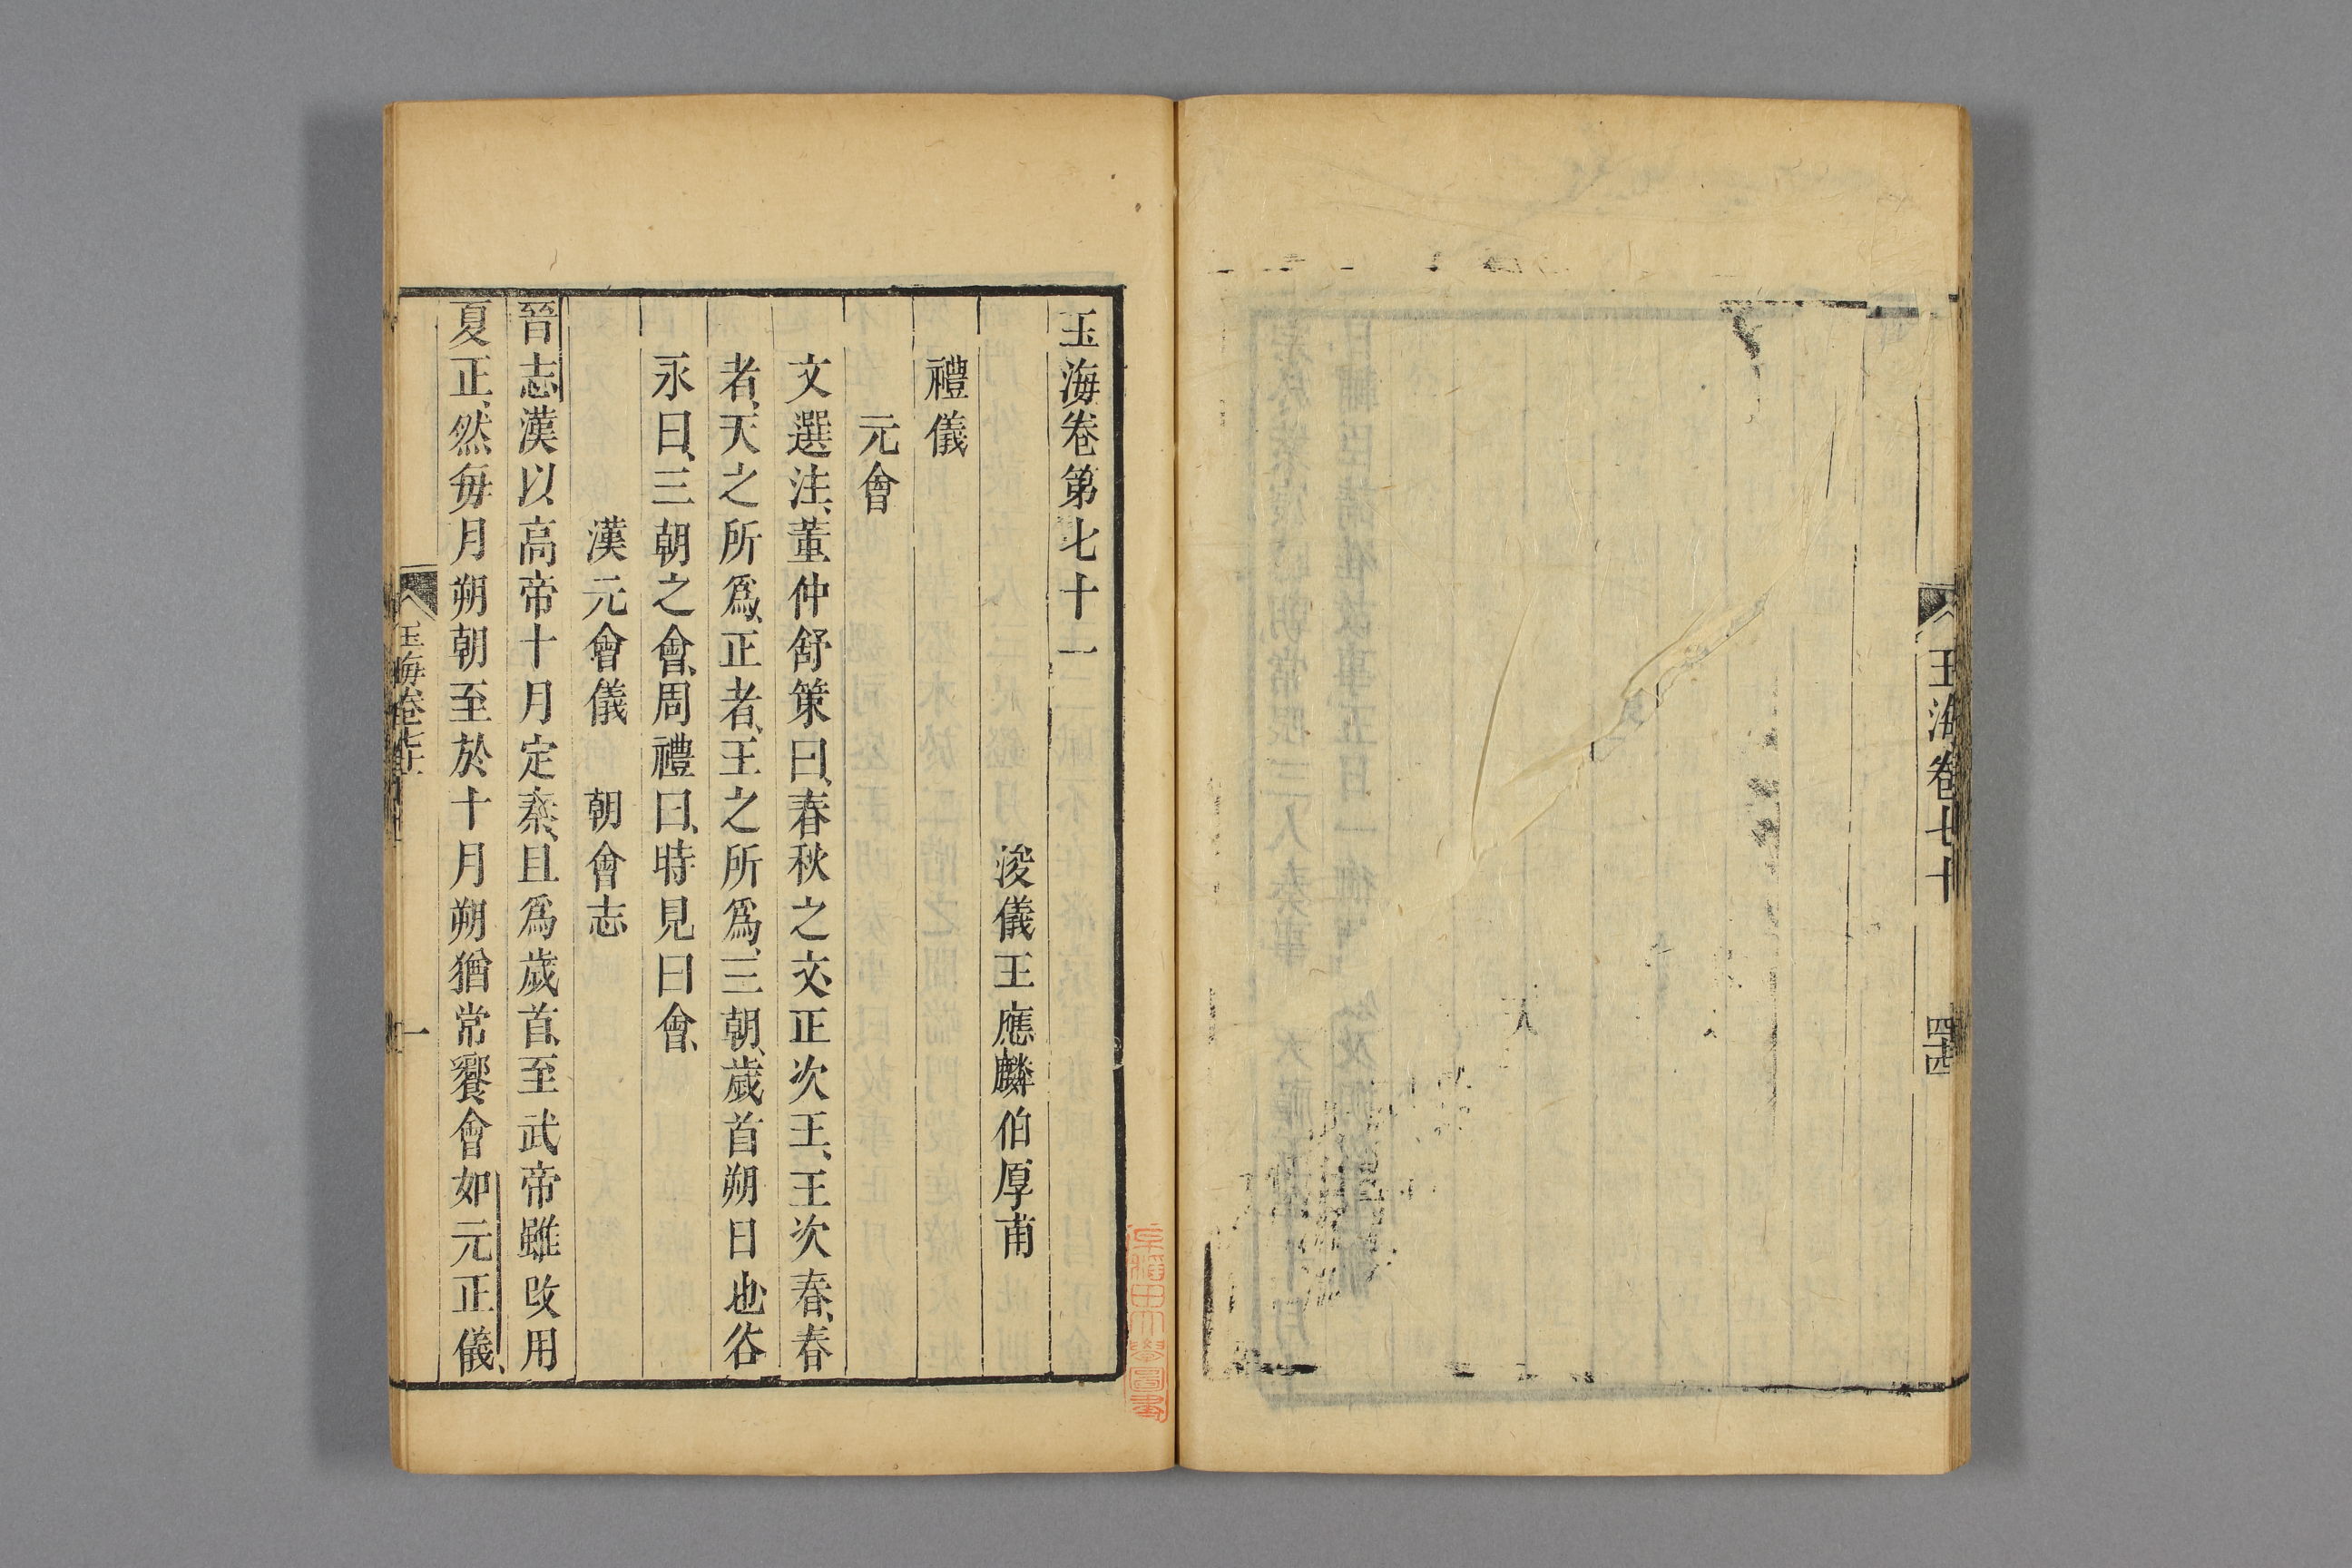 玉海卷七十
四十四
玉海卷第七十一
浚儀王應麟伯厚甫
禮儀
元會
文選注、董仲舒策曰、春秋之文、正次王、王次春、春
者、天之所爲、正者、王之所爲、三朝、歲首朔日也、谷
永曰、三朝之會、周禮曰、時見曰會、
漢元會儀　朝會志
晉志漢以高帝十月定秦、且爲歲首、至武帝雖改用
夏正、然每月朔朝至於十月朔猶常饗會如元正儀、
玉海卷七十一
一
早稻田大學圖書